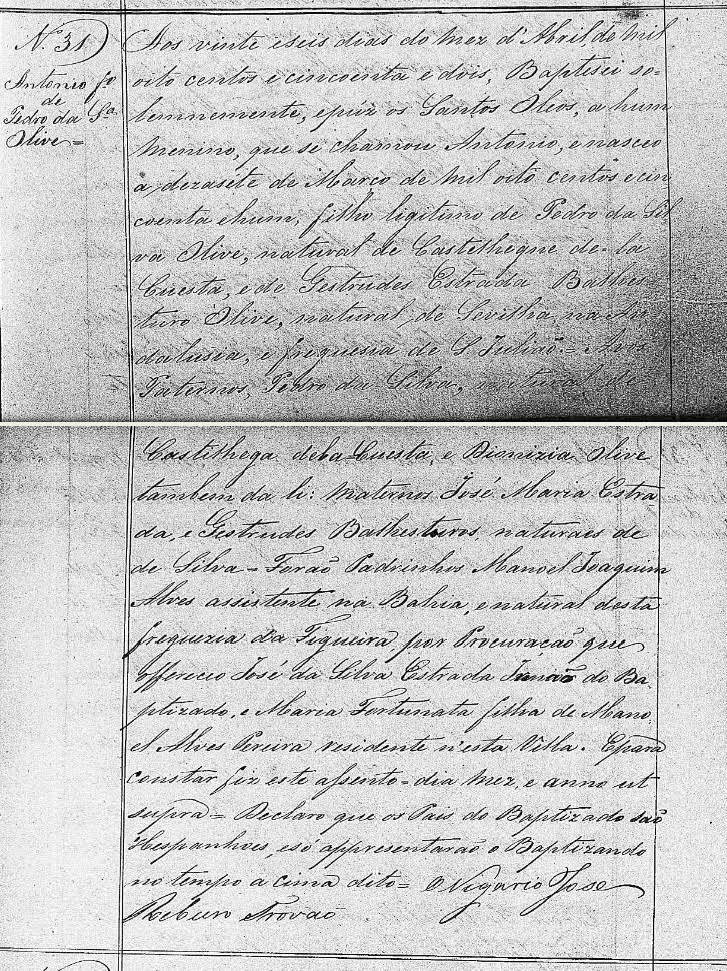 N. 31
Antonio fº
de
Pedro da Sª
Olive =
Aos vinte e seis dias do mez d'Abril, de mil
oito centos e cincoenta e dois, Baptisei so-
lemnemente, e puz os Santos Oleos, a hum
menino, que se chamou Antonio, e nasceo
a dezasete de Março de mil oito centos e cin
coenta e hum, filho ligitimo de Pedro da Sil
va Olive, natural de Castelhegne de la
Cuesta, e de Gestrudes Estrada Balhes
turo Olive, natural de Sevilha, na An
dalusia, e freguesia de S. Julião = Avos
Paternos, Pedro da Silva, natural de
Castelhega de la Cuesta, e Dionizia Olive
tambem da li: maternos José Maria Estra
da, e Gestrudes Balhesturos, naturaes de
de Silva = Forão Padrinhos Manoel Joaquim
Alves assistente na Bahia, e natural desta
freguezia da Figueira, por Procuração que
offereceo José da Silva Estrada Irmão do Ba-
ptizado, e Maria Fortunata filha de Mano
el Alves Pereira residente n'esta Villa. E para
constar fiz este assento = dia mez, e anno ut
supra = Declaro que os Pais do Baptizado são
Hespanhoes, e só appresentarão o Baptizando
no tempo a cima dito = O Vigario José
Trovão